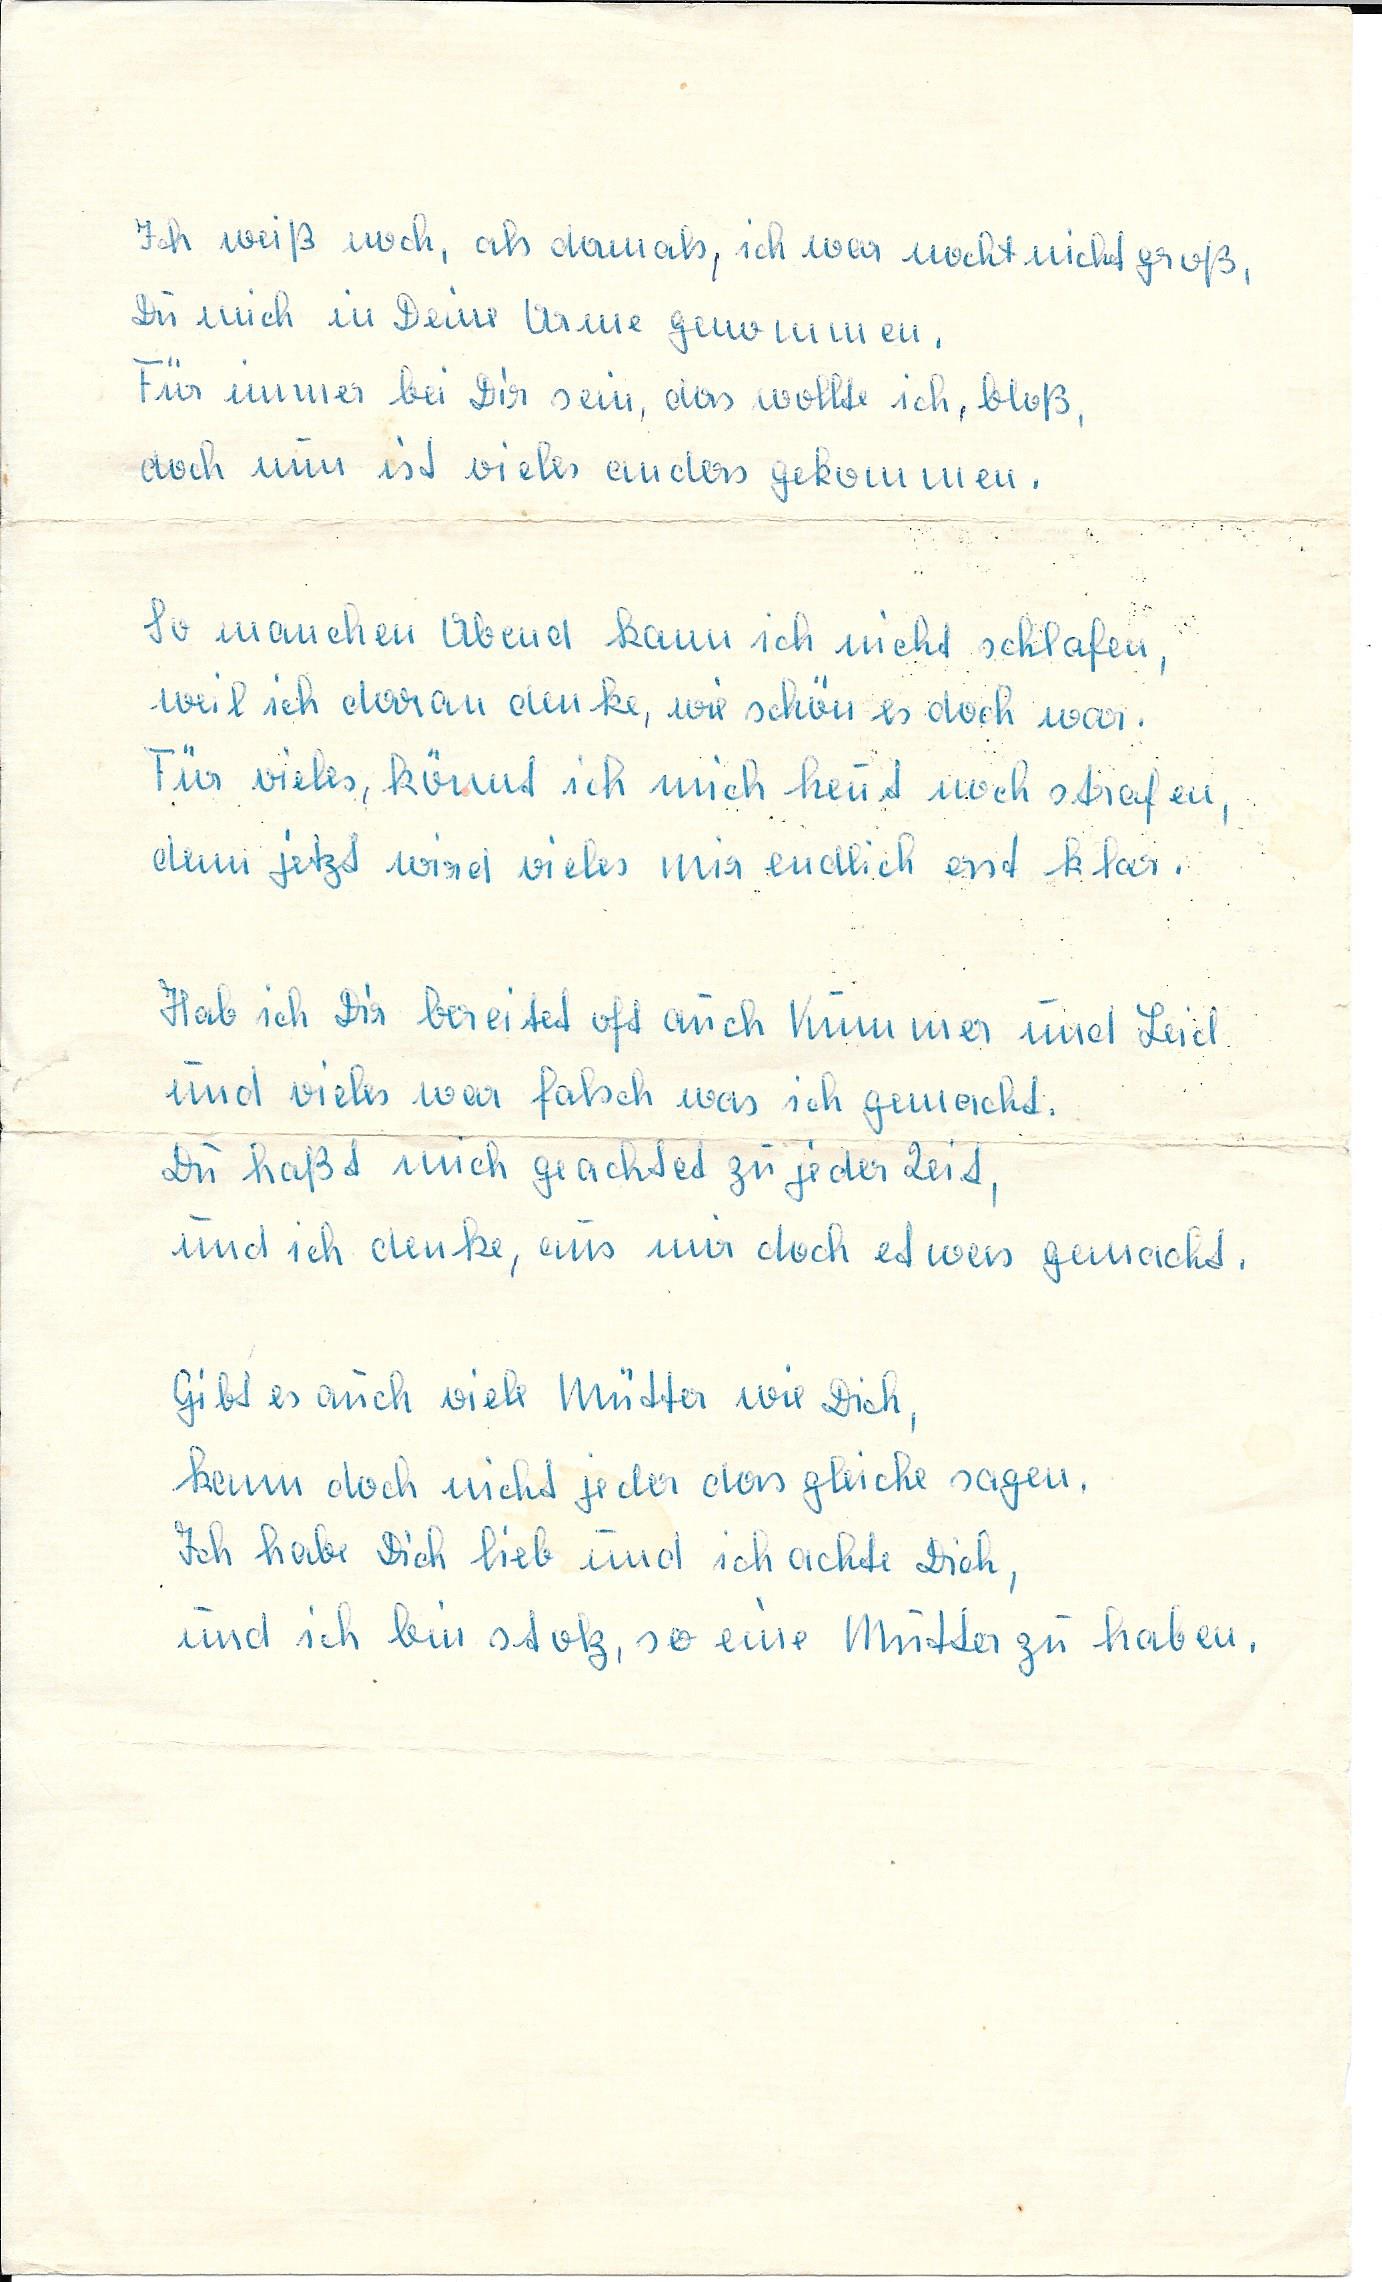 Ich weiß noch, als damals, ich war nocht nicht groß,
Du mich in Deine Arme genommen.
Für immer bei Dir sein, das wollte ich, bloß,
doch nun ist vieles anders gekommen.
So manchen Abend kann ich nicht schlafen,
weil ich daran denke, wie schön es doch war.
Für vieles, könnt ich mich heut noch strafen,
denn jetzt wird vieles mir endlich erst klar.
Hab ich Dir bereitet oft auch Kummer und Leid
und vieles war falsch was ich gemacht.
Du haßt mich geachtet zu jeder Zeit,
und ich denke, aus mir doch etwas gemacht.
Gibt es auch viele Mütter wie Dich,
kann doch nicht jeder das gleiche sagen.
Ich habe Dich lieb und ich achte Dich,
und ich bin stolz, so eine Mutter zu haben.